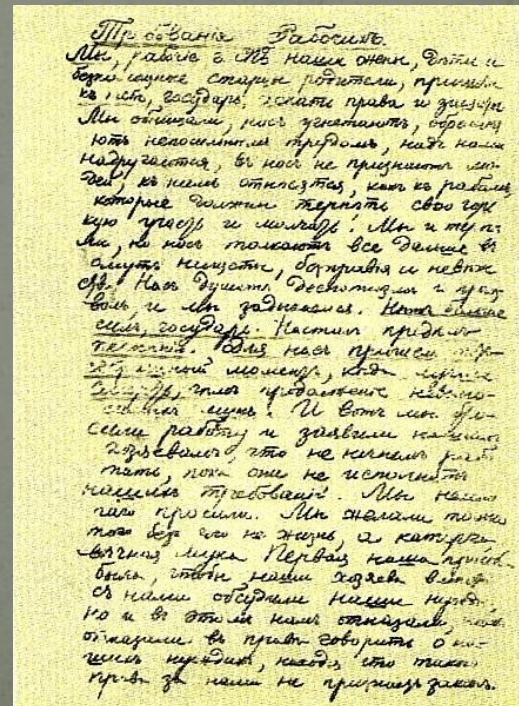 Требованія Рабочихъ.
Мы, рабочіе г. наши жены, дѣти и
старцы родители, пришли
къ тебѣ, государь, искать права и защиты
Мы обнищали, насъ угнетаютъ, обремѣня
ютъ непосильнымъ трудомъ, надъ нами
надругаются, въ насъ не признаютъ лю
дей, къ намъ относятся, какъ къ рабамъ,
которые должны терпѣть свою горь
кую участь и молчать! Мы и терпѣ
ли, но насъ толкаютъ все дальше въ
омутъ нищеты, безправья и невѣже
ства. Насъ душатъ деспотизмъ и произ
волъ, и мы задыхаемся. Нѣтъ больше
силъ, государь. Насталъ предѣлъ
терпѣнія. Для насъ пришелъ
моментъ, когда лучше
смерть, чѣмъ продолженіе невыно
мукъ! И вотъ мы бро
сили работу и заявили нашимъ
хозяевамъ, что не начнемъ рабо
тать, пока они не исполнятъ
нашихъ требованій. Мы немно
гаго просили. Мы желали только
того безъ чего не жизнь, а каторга
вѣчная мука Первая наша просьба
была, чтобы наши хозяева вмѣстѣ
съ нами обсудили наши нужды,
но и въ этомъ намъ отказали, намъ
отказали въ правѣ говорить о на
шихъ нуждахъ, находя что такого
права за нами не признаетъ законъ.